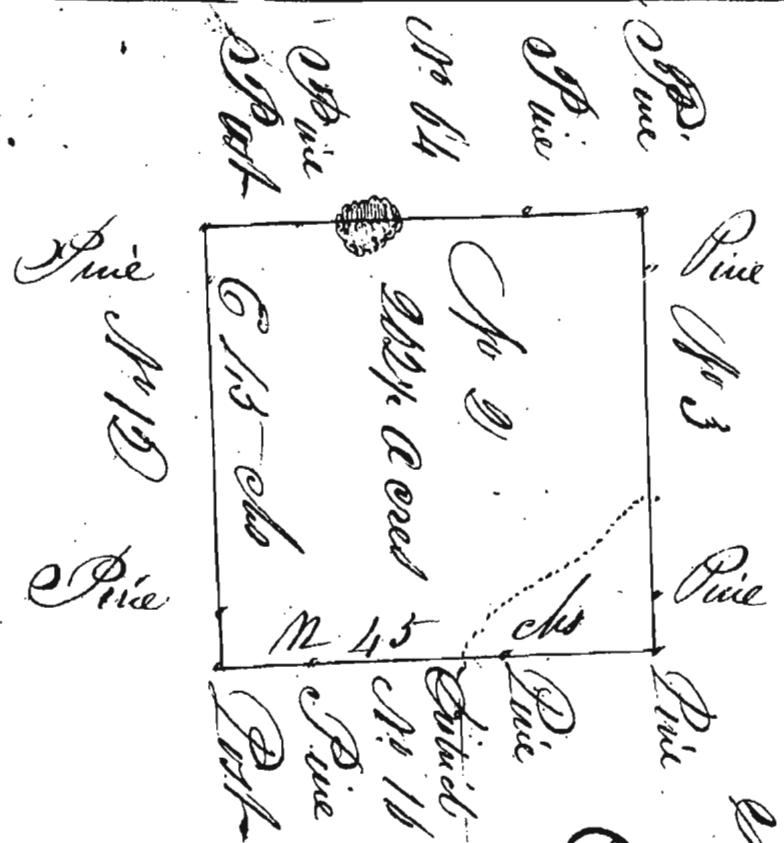 Pine
Pine
No 64
Pine
Post
Pine
No 3
Pine
No 2
202½ Acres
E 45 chs
N 45 chs
Pine
Pine
Pine
Pine
District
Pine
Post